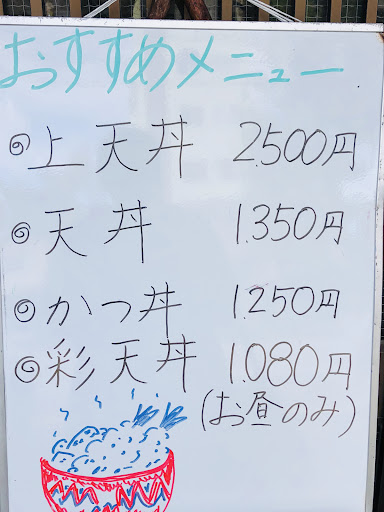 おすすめメニュー
◎上天丼 2.500円
◎天丼 1.350円
◎かつ丼 1.250円
◎彩天丼 1.080円
(お昼のみ)